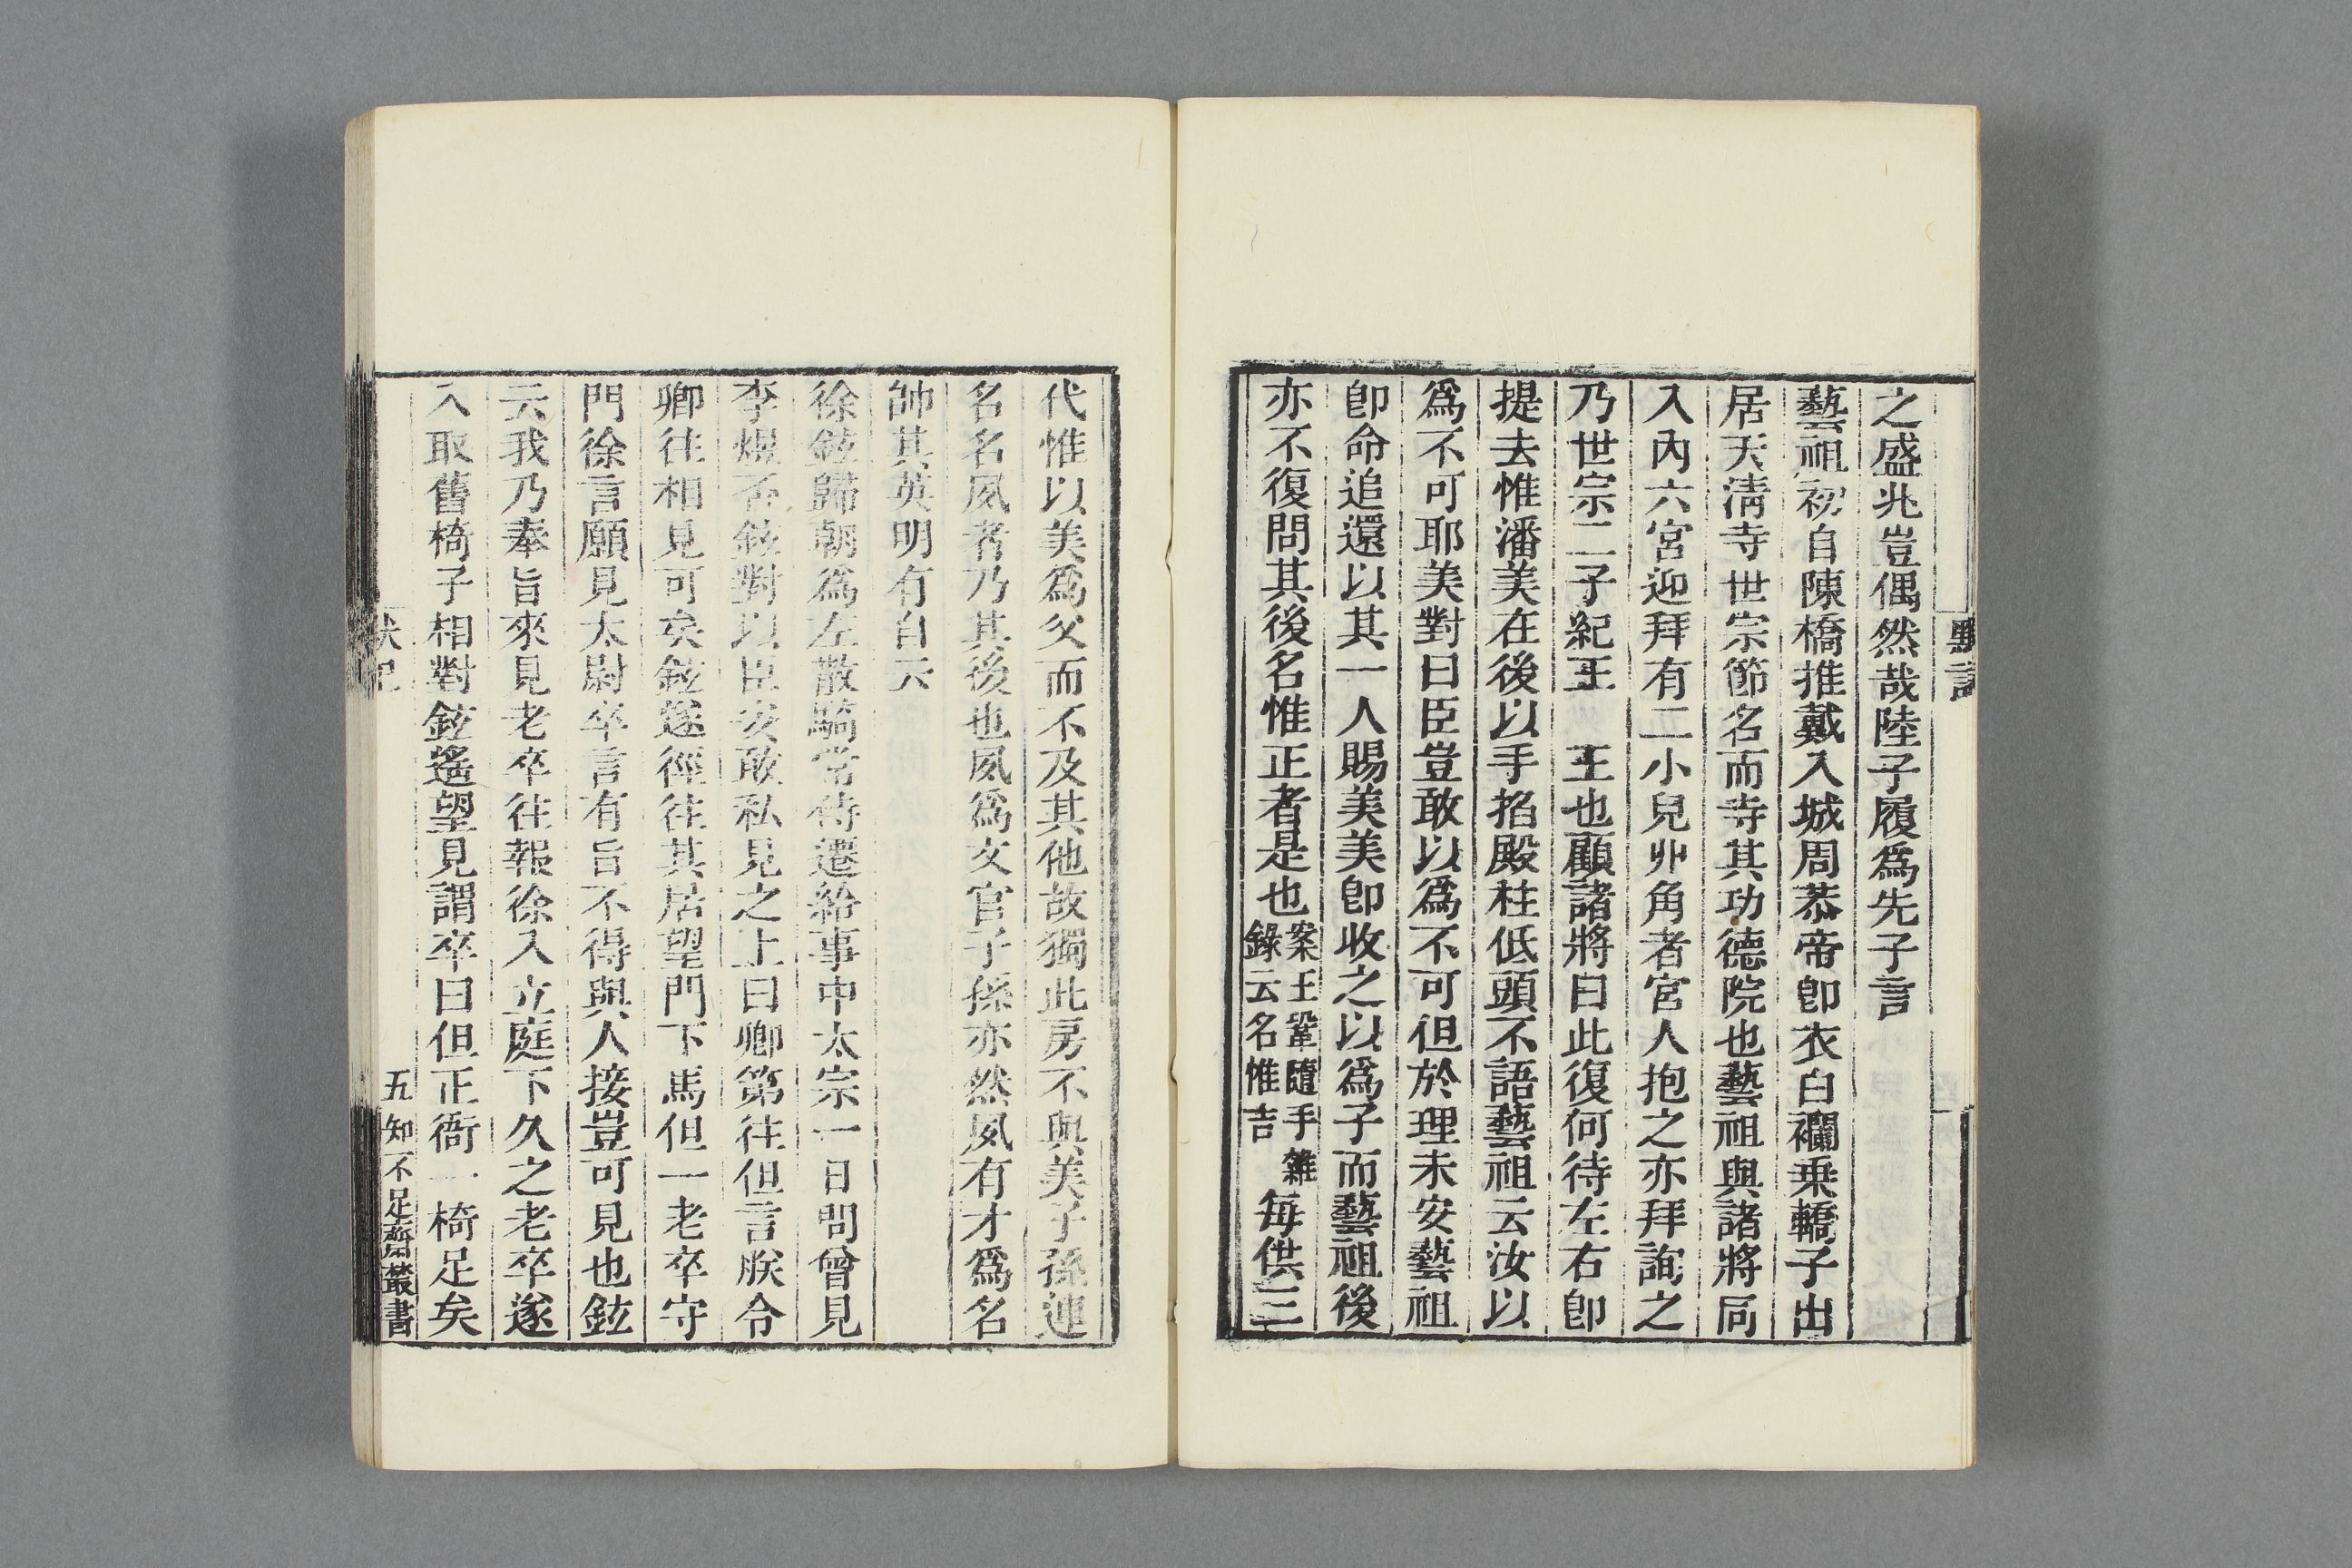 之盛兆豈偶然哉陸子履爲先子言
藝祖初自陳橋推戴入城周恭帝卽衣白襴乗轎子出
居天清寺世宗節名而寺其功德院也藝祖與諸將同
入內六宮迎拜有二小兒丱角者宮人抱之亦拜詢之
乃世宗二子紀王　王也顧諸將曰此復何待左右卽
提去惟潘美在後以手掐殿柱低頭不語藝祖云汝以
爲不可耶美對曰臣豈敢以爲不可但於理未安藝祖
卽命追還以其一人賜美美卽收之以爲子而藝祖後
亦不復問其後名惟正者是也案王鞏隨手雜錄云名惟吉每供三
代惟以美爲父而不及其他故獨此房不與美子孫連
名名夙者乃其後也夙爲文官子孫亦然夙有才爲名
帥其英明有自云
徐鉉歸朝爲左散騎常侍遷給事中太宗一日問曾見
李煜否鉉對以臣安敢私見之上曰卿第往但言朕令
卿往相見可矣鉉遂徑往其居望門下馬但一老卒守
門徐言願見太尉卒言有旨不得與人接豈可見也鉉
云我乃奉旨來見老卒往報徐入立庭下久之老卒遂
入取舊椅子相對鉉遙望見謂卒曰但正衙一椅足矣
五
知不足齋叢書